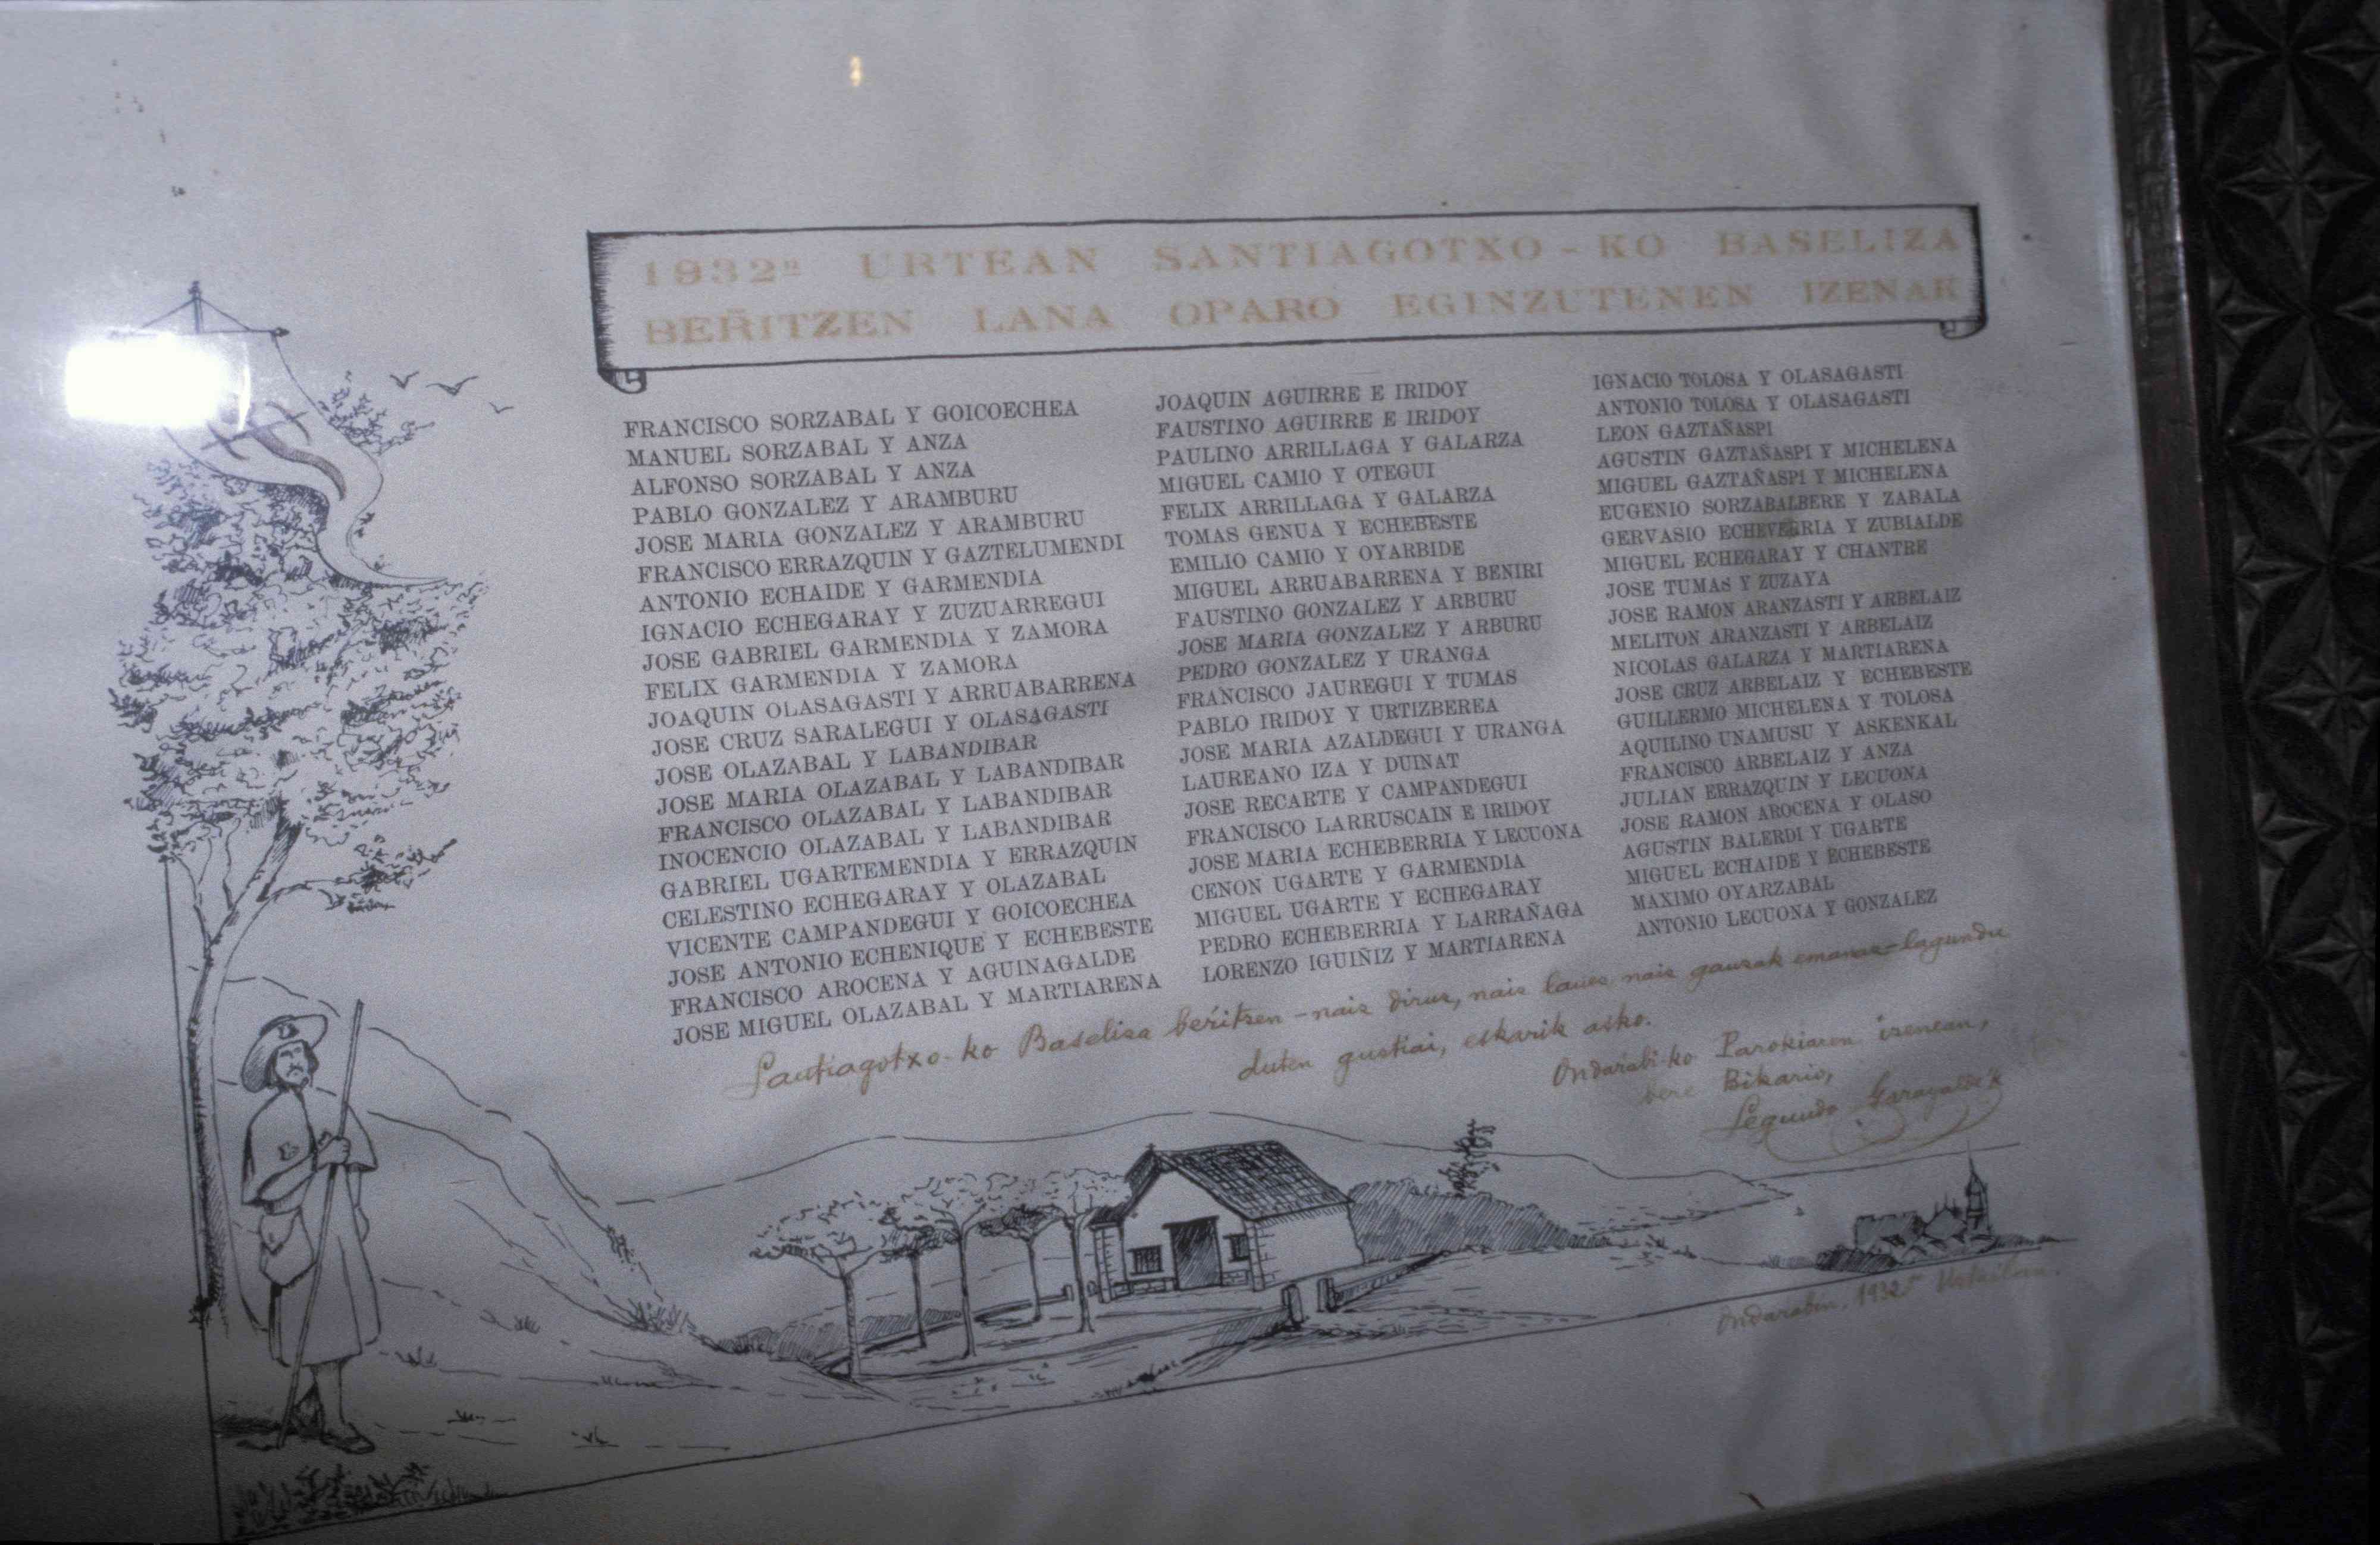 1932ⁿ URTEAN SANTIAGOTXO-KO BASELIZA
BER̃ITZEN LANA OPARO EGINZUTENEN IZENAK
FRANCISCO SORZABAL Y GOICOECHEA
MANUEL SORZABAL Y ANZA
ALFONSO SORZABAL Y ANZA
PABLO GONZALEZ Y ARAMBURU
JOSE MARIA GONZALEZ Y ARAMBURU
FRANCISCO ERRAZQUIN Y GAZTELUMENDI
ANTONIO ECHAIDE Y GARMENDIA
IGNACIO ECHEGARAY Y ZUZUARREGUI
JOSE GABRIEL GARMENDIA Y ZAMORA
FELIX GARMENDIA Y ZAMORA
JOAQUIN OLASAGASTI Y ARRUABARRENA
JOSE CRUZ SARALEGUI Y OLASAGASTI
JOSE OLAZABAL Y LABANDIBAR
JOSE MARIA OLAZABAL Y LABANDIBAR
FRANCISCO OLAZABAL Y LABANDIBAR
INOCENCIO OLAZABAL Y LABANDIBAR
GABRIEL UGARTEMENDIA Y ERRAZQUIN
CELESTINO ECHEGARAY Y OLAZABAL
VICENTE CAMPANDEGUI Y GOICOECHEA
JOSE ANTONIO ECHENIQUE Y ECHEBESTE
FRANCISCO AROCENA Y AGUINAGALDE
JOSE MIGUEL OLAZABAL Y MARTIARENA
JOAQUIN AGUIRRE E IRIDOY
FAUSTINO AGUIRRE E IRIDOY
PAULINO ARRILLAGA Y GALARZA
MIGUEL CAMIO Y OTEGUI
FELIX ARRILLAGA Y GALARZA
TOMAS GENUA Y ECHEBESTE
EMILIO CAMIO Y OYARBIDE
MIGUEL ARRUABARRENA Y BENIRI
FAUSTINO GONZALEZ Y ARBURU
JOSE MARIA GONZALEZ Y ARBURU
PEDRO GONZALEZ Y URANGA
FRANCISCO JAUREGUI Y TUMAS
PABLO IRIDOY Y URTIZBEREA
JOSE MARIA AZALDEGUI Y URANGA
LAUREANO IZA Y DUINAT
JOSE RECARTE Y CAMPANDEGUI
FRANCISCO LARRUSCAIN E IRIDOY
JOSE MARIA ECHEBERRIA Y LECUONA
CENON UGARTE Y GARMENDIA
MIGUEL UGARTE Y ECHEGARAY
PEDRO ECHEBERRIA Y LARRAÑAGA
LORENZO IGUIÑIZ Y MARTIARENA
IGNACIO TOLOSA Y OLASAGASTI
ANTONIO TOLOSA Y OLASAGASTI
LEON GAZTAÑASPI
AGUSTIN GAZTAÑASPI Y MICHELENA
MIGUEL GAZTAÑASPI Y MICHELENA
EUGENIO SORZABALBERE Y ZABALA
GERVASIO ECHEVERRIA Y ZUBIALDE
MIGUEL ECHEGARAY Y CHANTRE
JOSE TUMAS Y ZUZAYA
JOSE RAMON ARANZASTI Y ARBELAIZ
MELITON ARANZASTI Y ARBELAIZ
NICOLAS GALARZA Y MARTIARENA
JOSE CRUZ ARBELAIZ Y ECHEBESTE
GUILLERMO MICHELENA Y TOLOSA
AQUILINO UNAMUSU Y ASKENKAL
FRANCISCO ARBELAIZ Y ANZA
JULIAN ERRAZQUIN Y LECUONA
JOSE RAMON AROCENA Y OLASO
AGUSTIN BALERDI Y UGARTE
MIGUEL ECHAIDE Y ECHEBESTE
MAXIMO OYARZABAL
ANTONIO LECUONA Y GONZALEZ
Santiagotxo-ko Baseliza ber̃itzen - naiz diruz, naiz lanez, naiz gauzak emanaz - lagundu
duten guztiai, eskarik asko.
Ondar̃abi-ko Parokiaren izenean,
bere Bikario,
Segundo Garayalde'k
Ondar̃abin, 1932